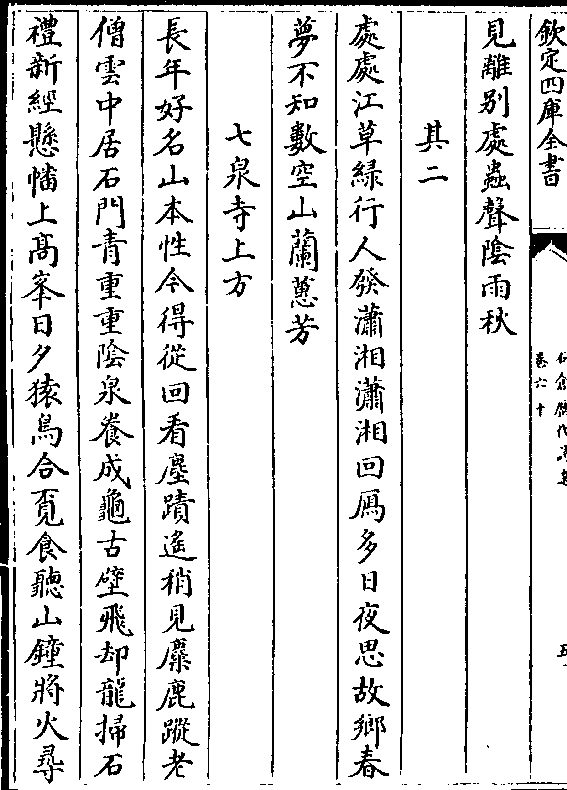 欽定四庫全書
見離別處蟲聲陰雨秋
其二
處處江草緑行人發瀟湘瀟湘回鴈多日夜思故鄉春
夢不知數空山蘭蕙芳
七泉寺上方
長年好名山本性今得從回看塵蹟遙稍見麋鹿蹤老
僧雲中居石門青重重陰泉養成龜古壁飛却龍掃石
禮新經懸幡上髙峯日夕猿鳥合覔食聽山鐘將火尋
卷六十